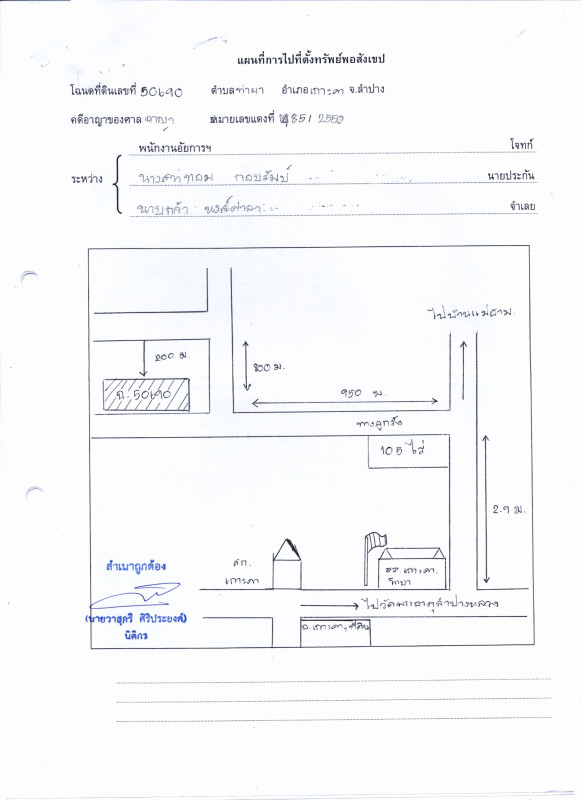 แผนที่การไปที่ตั้งทรัพย์พอสังเขป
โฉนดที่ดินเลขที่ 50690 ตำบลท่าผา อำเภอเกาะคา จ.ลำปาง
คดีอาญาของศาล อาญา หมายเลขแดงที่ 851/2550
พนักงานอัยการฯ โจทก์
ระหว่าง นายประกัน
จำเลย
ไปบ้านแม่ฮาม.
200 ม.
800 ม.
ฉ. 50690
950 ม.
ทางลูกรัง
105 ไร่
2.9 ม.
สำเนาถูกต้อง
เกาะคา
รร.เกาะคา.
วิทยา
(นายวาสุกรี ศิริประยงค์)
นิติกร
ไปวัดพระธาตุลำปางหลวง